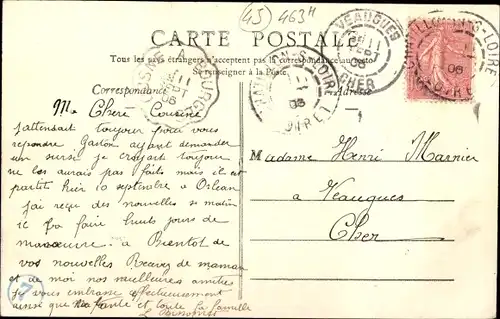 45 463H
CARTE POSTALE
Tous les pays étrangers n'acceptent pas la correspondance au recto
Se renseigner à la Poste
Correspondance
Adresse
VEAUGUES
11
SEPT
06
CHER
CHATILLON-S-LOIRE
06
(LOIRET)
BOURGES
06
Ma Chere Cousine
j'attensait toujour pour vous
repondre Gaston ayant demander
un sursi je croyait toujour
ne les aurais pas faits mais il est
partit hier 10 septembre a Orlean
j'ai reçu des nouvelles se matin
ic va faire huits jours de
manoeuvre a Bientot de
vos nouvelles Recevez de maman
et de moi nos meilleures amities
Je vous embrasse affectueusement
ainsi que ma tante et toute la famille
Madame Henri Marnier
a Veaugues
Cher
7